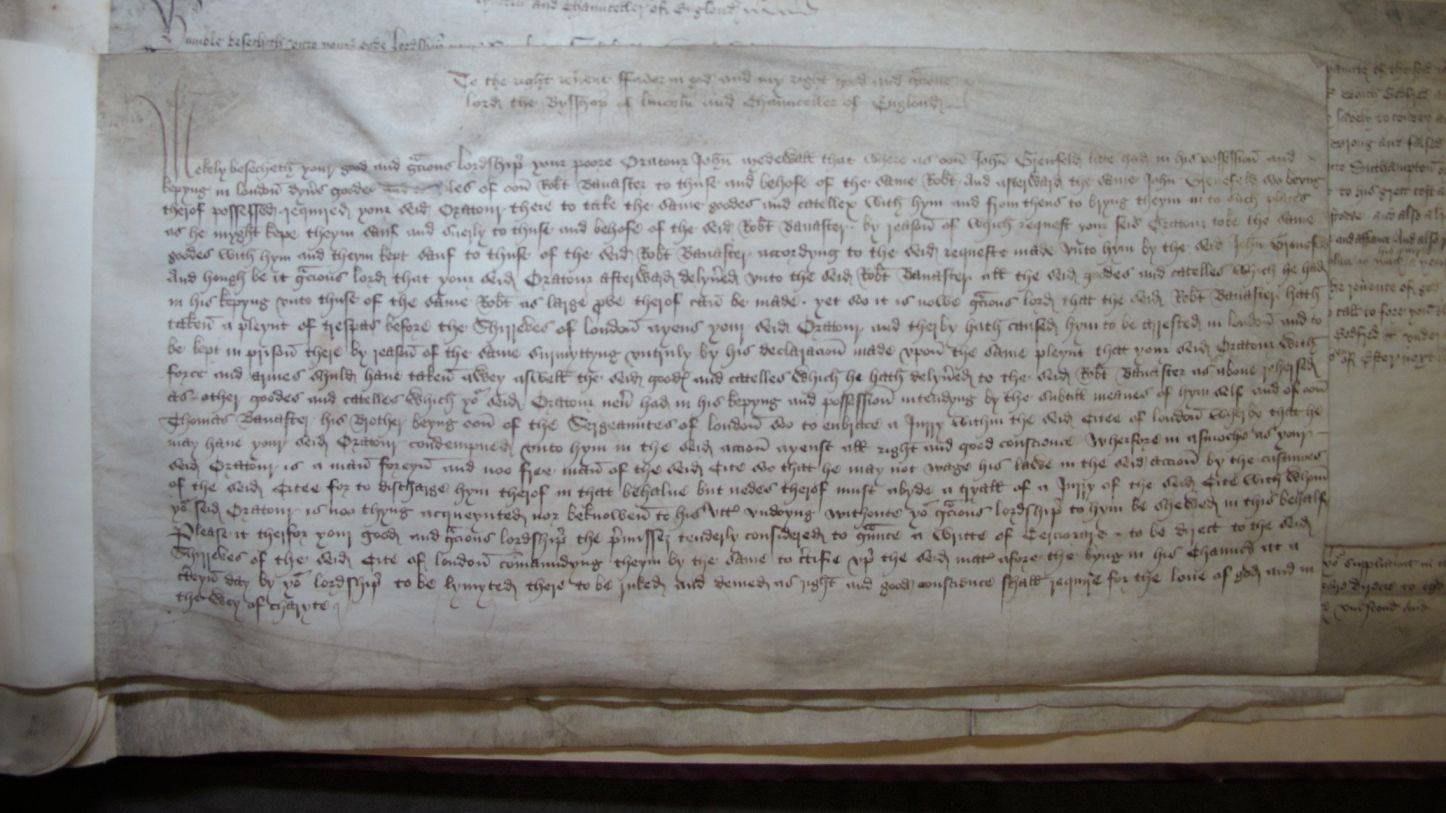 and Chaunceller of Englond
Humble besechith unto youre gode lordship
To the right reu'ent ffader in god and my right good and g'cious
lord the Bysshop of lincoln and Chaunceller of Englond
Mekely besecheth your god and g'cious lordship' your poore Oratour John that where as oon John Grenefeld late had in his possession and
kepyng in london dyu's goodes of oon Rob't Banaster to thuse and behofe of the same Rob't And afterward the same John Grenefeld so beyng
therof possessed required your seid Oratour there to take the same godes and catellex with hym and from thens to bryng theym in to such places
as he myght kepe theym sauf and suerly to thuse and behofe of the seid Rob't Banaster. by reason of which request your seid Oratour toke the same
godes with hym and theym kept sauf to thuse of the seid Rob't Banaster accordyng to the seid requeste made vnto hym by the seid John Grenefeld
And hough be it g'cious lord that your seid Oratour afterward delyu'ed vnto the seid Rob't Banaster all the seid godes and catelles which he had
in his kepyng vnto thuse of the same Rob't as large p'be therof can be made. yet so it is nowe g'cious lord that the seid Rob't Banaster hath
taken a pleynt of trespas before the Shirreves of london ayens your seid Oratour and therby hath caused hym to be arested in london and to
be kept in prison there by reason of the same surmyttyng untruly by his declaracion made vpon the same pleynt that your seid Oratour with
force and armes shuld haue taken awey aswell the seid good' and catelles which he hath delyu'ed to the seid Rob't Banaster as aboue rehersed
as other godes and catelles which yo' seid Oratour neu' had in his kepyng and possession intendyng by the subtill meanes of hym self and of oon
Thomas Banaster his Brother beyng oon of the Sergeauntes of london so to enbrace a Jury within the seid Citee of london wherby that he
may haue your seid Oratour condempned vnto hym in the seid accion ayenst all right and good conscience Wherfore in asmoche as your
seid Oratour is a man foreyn and noo free man of the seid Cite so that he may not wage his lawe in the seid accion by the custumes
of the seid Citee for to discharge hym therof in that behalue but nedes therof must abyde a tryall of a Jury of the seid Cite with whom
yo' seid Oratour is noo thyng acqueynted nor beknowen to his vtt' vndoyng withoute yo' g'cious lordship' to hym be shewed in this behalf
Please it therfor your good and g'cious lordship' the p'misses tenderly considered to g'unte a writte of Cerciorare to be direct to the seid
Shirreves of the seid Cite of london comaundyng theym by the same to c'tifie vp' the seid mat' afore the kyng in his Chaunc'i at a
c'teyn day by yo' lordship' to be lymyted there to be ruled and demed as right and good conscience shall require for the loue of god and in
the wey of charyte